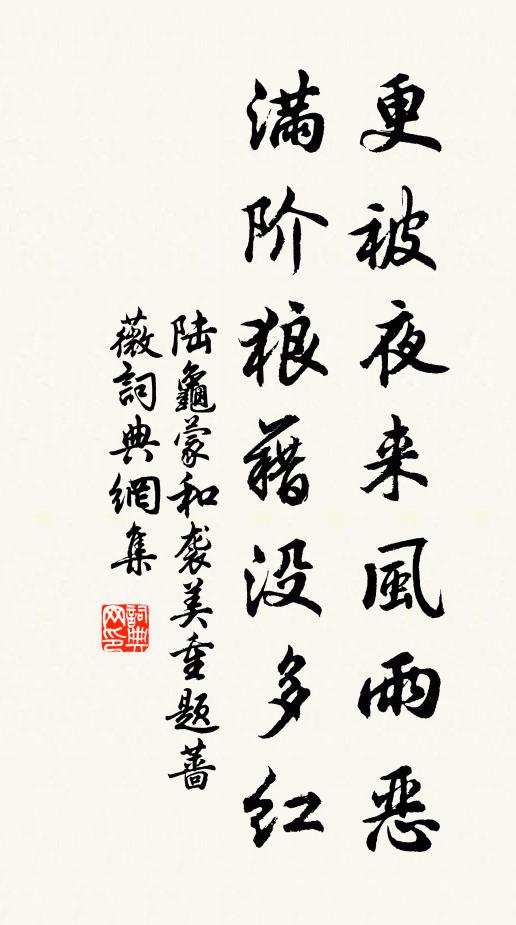 更被夜来風雨惡
满阶狼藉没多红
陆龜蒙和袭美重题蔷
薇詞典網集
詞典网印